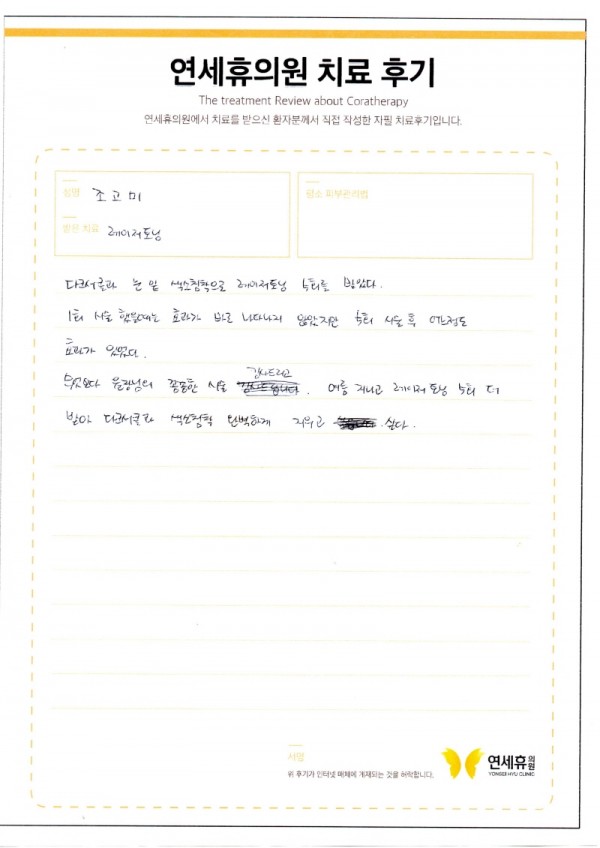 연세휴의원 치료 후기
The treatment Review about Coratherapy
연세휴의원에서 치료를 받으신 환자분께서 직접 작성한 자필 치료후기입니다.
성명 조고미
받은 치료 레이저토닝
평소 피부관리법
다크서클과 눈 밑 색소침착으로 레이저토닝 5회를 받았다.
1회 시술 했을때는 효과가 바로 나타나지 않았지만 5회 시술 후 어느정도
효과가 있었다.
무엇보다 원장님의 꼼꼼한 시술 감사드리고 . 여름 지나고 레이저 토닝 5회 더
받아 다크서클과 색소침착 완벽하게 지우고 싶다.
서명
위 후기가 인터넷 매체에 게재되는 것을 허락합니다.
연세휴의원
YONSEI HYU CLINIC